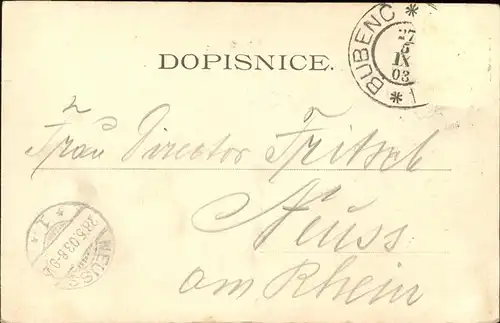 BUBENC
27
5
IX
03
DOPISNICE.
Frau Director Fritsch
Neuss
am Rhein
NEUSS
28.5.03.8-9
1